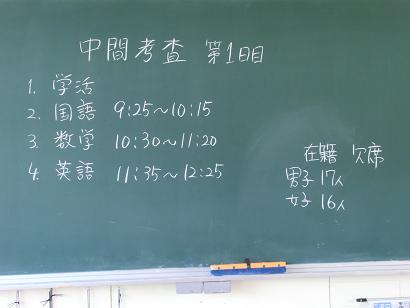 中間考査 第1日目
1. 学活
2. 国語 9:25〜10:15
3. 数学 10:30〜11:20
4. 英語 11:35〜12:25
在籍 欠席
男子 17人
女子 16人